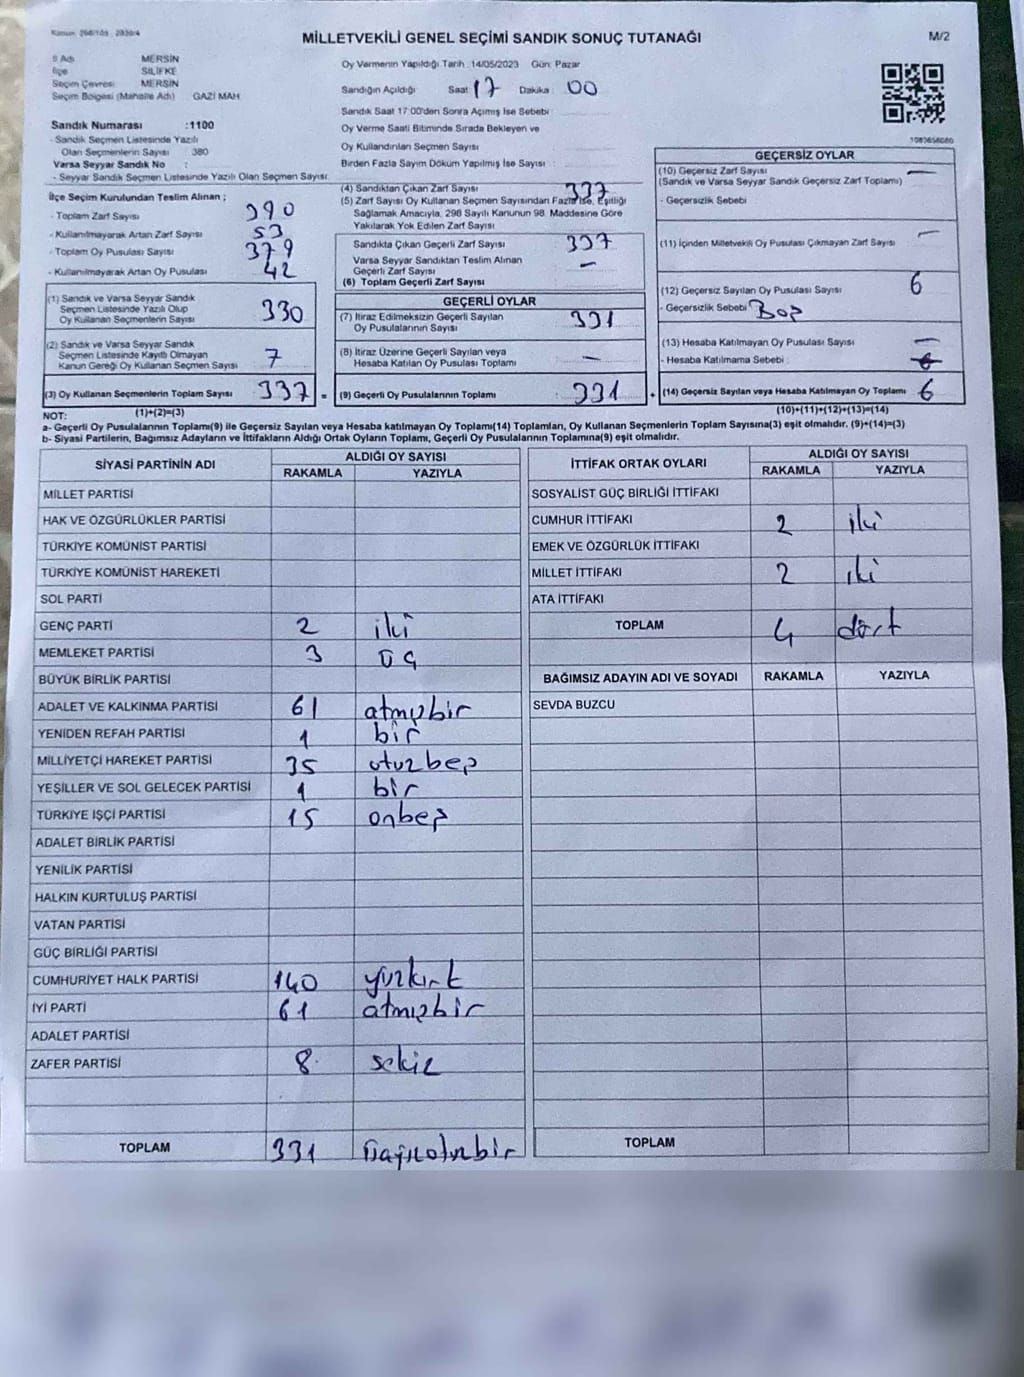 MİLLETVEKİLİ GENEL SEÇİMİ SANDIK SONUÇ TUTANAĞI
M/2
İl Adı MERSİN
İlçe SİLİFKE
Seçim Çevresi MERSİN
Seçim Bölgesi (Mahalle Adı) GAZİ MAH
Sandık Numarası :1100
- Sandık Seçmen Listesinde Yazılı
Olan Seçmenlerin Sayısı : 380
Varsa Seyyar Sandık No :
- Seyyar Sandık Seçmen Listesinde Yazılı Olan Seçmen Sayısı:
Oy Vermenin Yapıldığı Tarih :14/05/2023 Gün: Pazar
Sandığın Açıldığı Saat 17 Dakika 00
Sandık Saat 17:00'den Sonra Açımış İse Sebebi :
Oy Verme Saati Bitiminde Sırada Bekleyen ve
Oy Kullandırılan Seçmen Sayısı
Birden Fazla Sayım Döküm Yapılmış İse Sayısı :
İlçe Seçim Kurulundan Teslim Alınan ;
- Toplam Zarf Sayısı 390
- Kullanılmayarak Artan Zarf Sayısı 53
- Toplam Oy Pusulası Sayısı 379
- Kullanılmayarak Artan Oy Pusulası 42
(1) Sandık ve Varsa Seyyar Sandık
Seçmen Listesinde Yazılı Olup
Oy Kullanan Seçmenlerin Sayısı 330
(2) Sandık ve Varsa Seyyar Sandık
Seçmen Listesinde Kayıtlı Olmayan
Kanun Gereği Oy Kullanan Seçmen Sayısı 7
(3) Oy Kullanan Seçmenlerin Toplam Sayısı 337 =
(4) Sandıktan Çıkan Zarf Sayısı 337
(5) Zarf Sayısı Oy Kullanan Seçmen Sayısından Fazla İse, Eşitliği
Sağlamak Amacıyla, 298 Sayılı Kanunun 98. Maddesine Göre
Yakılarak Yok Edilen Zarf Sayısı
Sandıkta Çıkan Geçerli Zarf Sayısı 337
Varsa Seyyar Sandıktan Teslim Alınan
Geçerli Zarf Sayısı –
(6) Toplam Geçerli Zarf Sayısı
GEÇERLİ OYLAR
(7) İtiraz Edilmeksizin Geçerli Sayılan
Oy Pusulalarının Sayısı 331
(8) İtiraz Üzerine Geçerli Sayılan veya
Hesaba Katılan Oy Pusulası Toplamı –
(9) Geçerli Oy Pusulalarının Toplamı 331 +
GEÇERSİZ OYLAR
(10) Geçersiz Zarf Sayısı –
(Sandık ve Varsa Seyyar Sandık Geçersiz Zarf Toplamı)
- Geçersizlik Sebebi
(11) İçinden Milletvekili Oy Pusulası Çıkmayan Zarf Sayısı –
(12) Geçersiz Sayılan Oy Pusulası Sayısı 6
- Geçersizlik Sebebi Boş
(13) Hesaba Katılmayan Oy Pusulası Sayısı –
- Hesaba Katılmama Sebebi :
(14) Geçersiz Sayılan veya Hesaba Katılmayan Oy Toplamı 6
NOT: (1)+(2)=(3)
(10)+(11)+(12)+(13)=(14)
a- Geçerli Oy Pusulalarının Toplamı(9) ile Geçersiz Sayılan veya Hesaba katılmayan Oy Toplamı(14) Toplamları, Oy Kullanan Seçmenlerin Toplam Sayısına(3) eşit olmalıdır. (9)+(14)=(3)
b- Siyasi Partilerin, Bağımsız Adayların ve İttifakların Aldığı Ortak Oyların Toplamı, Geçerli Oy Pusulalarının Toplamına(9) eşit olmalıdır.
SİYASİ PARTİNİN ADI ALDIĞI OY SAYISI
RAKAMLA YAZIYLA
MİLLET PARTİSİ
HAK VE ÖZGÜRLÜKLER PARTİSİ
TÜRKİYE KOMÜNİST PARTİSİ
TÜRKİYE KOMÜNİST HAREKETİ
SOL PARTİ
GENÇ PARTİ 2 iki
MEMLEKET PARTİSİ 3 üç
BÜYÜK BİRLİK PARTİSİ
ADALET VE KALKINMA PARTİSİ 61 atmışbir
YENİDEN REFAH PARTİSİ 1 bir
MİLLİYETÇİ HAREKET PARTİSİ 35 otuzbeş
YEŞİLLER VE SOL GELECEK PARTİSİ 1 bir
TÜRKİYE İŞÇİ PARTİSİ 15 onbeş
ADALET BİRLİK PARTİSİ
YENİLİK PARTİSİ
HALKIN KURTULUŞ PARTİSİ
VATAN PARTİSİ
GÜÇ BİRLİĞİ PARTİSİ
CUMHURİYET HALK PARTİSİ 140 yüzkırk
İYİ PARTİ 61 atmışbir
ADALET PARTİSİ
ZAFER PARTİSİ 8 sekiz
TOPLAM 331
İTTİFAK ORTAK OYLARI ALDIĞI OY SAYISI
RAKAMLA YAZIYLA
SOSYALİST GÜÇ BİRLİĞİ İTTİFAKI
CUMHUR İTTİFAKI 2 iki
EMEK VE ÖZGÜRLÜK İTTİFAKI
MİLLET İTTİFAKI 2 iki
ATA İTTİFAKI
TOPLAM 4 dört
BAĞIMSIZ ADAYIN ADI VE SOYADI RAKAMLA YAZIYLA
SEVDA BUZCU
TOPLAM